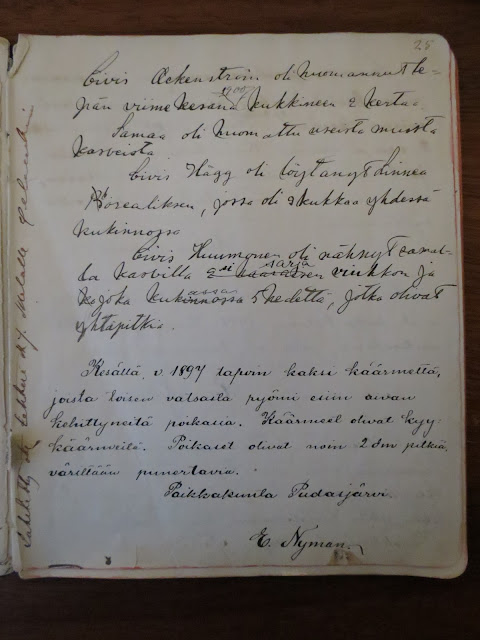 25
Civis Ackenström oli huomannut le-
pän viime kesänä kukkineen 2 kertaa.
1900
Samaa oli huomattu useista muista
kasveista.
Civis Hägg oli löytänyt Linnea
Borealiksen, jossa oli 3 kukkaa yhdessä
kukinnossa
Civis Huumonen oli nähnyt samal-
la kasvilla
sarja
viukkon ja
joka kukinnossa 5 kedettä, jotka olivat
assa
yhtäpitkiä.
Kesällä v. 1897 tapoin kaksi käärmettä,
josta toisen vatsasta pyöri esiin aivan
kehittyneitä poikasia. Käärmeet olivat kyy-
käärmeitä. Poikaset olivat noin 2 dm pitkiä
väriltään punertavia.
Paikkakunta Pudasjärvi.
E. Nyman.